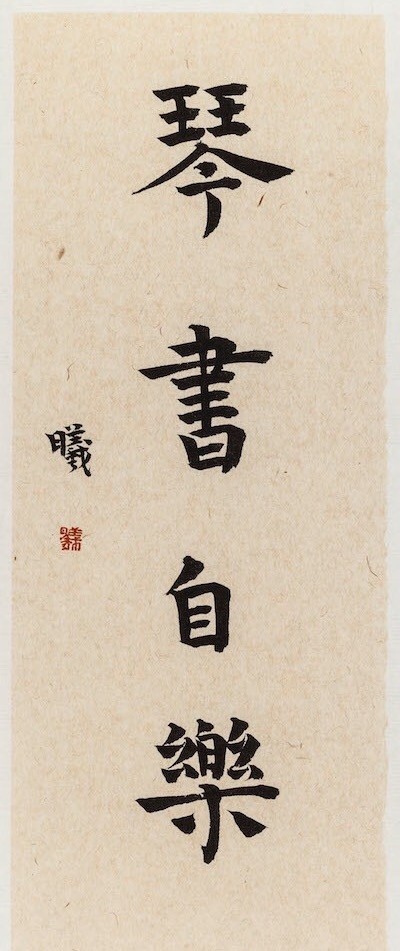 琴書自樂
曦
曦